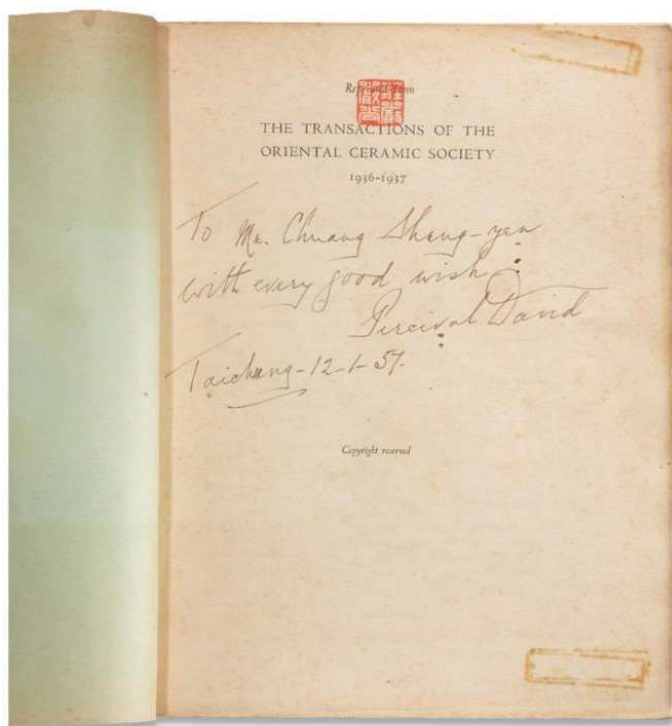 Reprinted from
THE TRANSACTIONS OF THE
ORIENTAL CERAMIC SOCIETY
1936-1937
To Mr. Chuang Shang-yen
with every good wish
Percival David
Taichung-12-1-57.
Copyright reserved